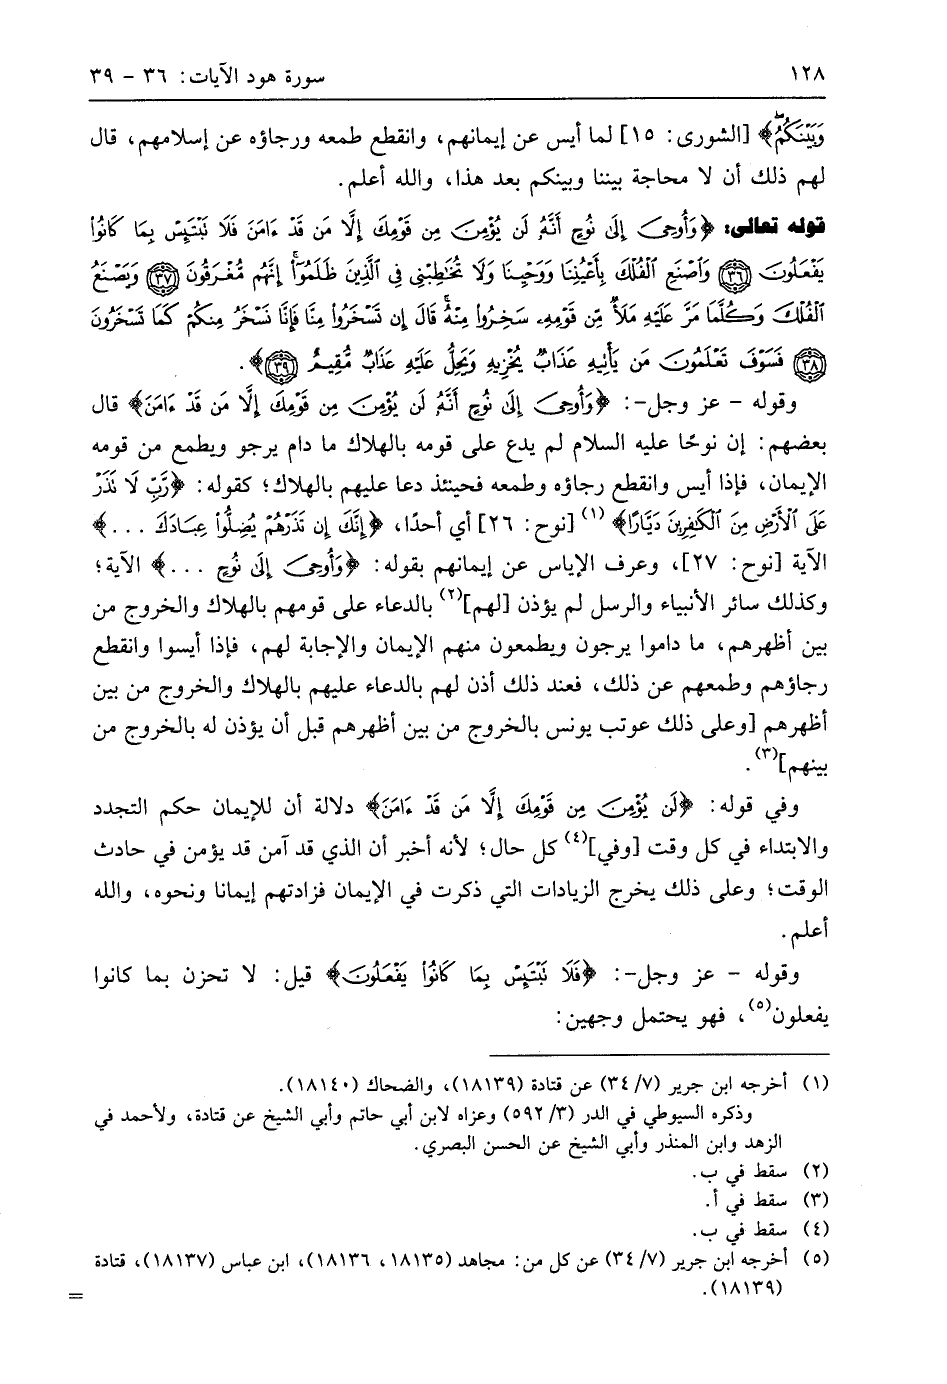 ١٢٨ سورة هود الآيات: ٣٦ - ٣٩
وَبَيْنَكُمُ﴾ [الشورى: ١٥] لما أيس عن إيمانهم، وانقطع طمعه ورجاؤه عن إسلامهم، قال
لهم ذلك أن لا محاجة بيننا وبينكم بعد هذا، والله أعلم.
قوله تعالى: ﴿وَأُوحِىَ إِلَىٰ نُوحٍ أَنَّهُ لَن يُؤْمِنَ مِن قَوْمِكَ إِلَّا مَن قَدْ ءَامَنَ فَلَا نَبْتَيِسْ بِمَا كَانُوا۟
يَفْعَلُونَ ﴿٣٦﴾ وَٱصْنَعِ ٱلْفُلْكَ بِأَعْيُنِنَا وَوَحْيِنَا وَلَا تُخَٰطِبْنِى فِى ٱلَّذِينَ ظَلَمُوٓا۟ إِنَّهُم مُّغْرَقُونَ ﴿٣٧﴾ وَيَصْنَعُ
ٱلْفُلْكَ وَكُلَّمَا مَرَّ عَلَيْهِ مَلَأٌ مِّن قَوْمِهِۦ سَخِرُوا۟ مِنْهُ قَالَ إِن تَسْخَرُوا۟ مِنَّا فَإِنَّا نَسْخَرُ مِنكُمْ كَمَا تَسْخَرُونَ
﴿٣٨﴾ فَسَوْفَ تَعْلَمُونَ مَن يَأْتِيهِ عَذَابٌ يُخْزِيهِ وَيَحِلُّ عَلَيْهِ عَذَابٌ مُّقِيمٌ ﴿٣٩﴾﴾.
وقوله - عز وجل-: ﴿وَأُوحِىَ إِلَىٰ نُوحٍ أَنَّهُ لَن يُؤْمِنَ مِن قَوْمِكَ إِلَّا مَن قَدْ ءَامَنَ﴾ قال
بعضهم: إن نوحًا عليه السلام لم يدع على قومه بالهلاك ما دام يرجو ويطمع من قومه
الإيمان، فإذا أيس وانقطع رجاؤه وطمعه فحينئذ دعا عليهم بالهلاك؛ كقوله: ﴿رَّبِّ لَا نَذَرْ
عَلَى ٱلْأَرْضِ مِنَ ٱلْكَٰفِرِينَ دَيَّارًا﴾(١) [نوح: ٢٦] أي أحدًا، ﴿إِنَّكَ إِن تَذَرْهُمْ يُضِلُّوا۟ عِبَادَكَ ...﴾
الآية [نوح: ٢٧]، وعرف الإياس عن إيمانهم بقوله: ﴿وَأُوحِىَ إِلَىٰ نُوحٍ ...﴾ الآية؛
وكذلك سائر الأنبياء والرسل لم يؤذن [لهم](٢) بالدعاء على قومهم بالهلاك والخروج من
بين أظهرهم، ما داموا يرجون ويطمعون منهم الإيمان والإجابة لهم، فإذا أيسوا وانقطع
رجاؤهم وطمعهم عن ذلك، فعند ذلك أذن لهم بالدعاء عليهم بالهلاك والخروج من بين
أظهرهم [وعلى ذلك عوتب يونس بالخروج من بين أظهرهم قبل أن يؤذن له بالخروج من
بينهم](٣).
وفي قوله: ﴿لَن يُؤْمِنَ مِن قَوْمِكَ إِلَّا مَن قَدْ ءَامَنَ﴾ دلالة أن للإيمان حكم التجدد
والابتداء في كل وقت [وفي](٤) كل حال؛ لأنه أخبر أن الذي قد آمن قد يؤمن في حادث
الوقت؛ وعلى ذلك يخرج الزيادات التي ذكرت في الإيمان فزادتهم إيمانا ونحوه، والله
أعلم.
وقوله - عز وجل-: ﴿فَلَا نَبْتَيِسْ بِمَا كَانُوا۟ يَفْعَلُونَ﴾ قيل: لا تحزن بما كانوا
يفعلون(٥)، فهو يحتمل وجهين:
(١) أخرجه ابن جرير (٧/ ٣٤) عن قتادة (١٨١٣٩)، والضحاك (١٨١٤٠).
وذكره السيوطي في الدر (٣/ ٥٩٢) وعزاه لابن أبي حاتم وأبي الشيخ عن قتادة، ولأحمد في
الزهد وابن المنذر وأبي الشيخ عن الحسن البصري.
(٢) سقط في ب.
(٣) سقط في أ.
(٤) سقط في ب.
(٥) أخرجه ابن جرير (٧/ ٣٤) عن كل من: مجاهد (١٨١٣٥، ١٨١٣٦)، ابن عباس (١٨١٣٧)، قتادة
(١٨١٣٩).
=